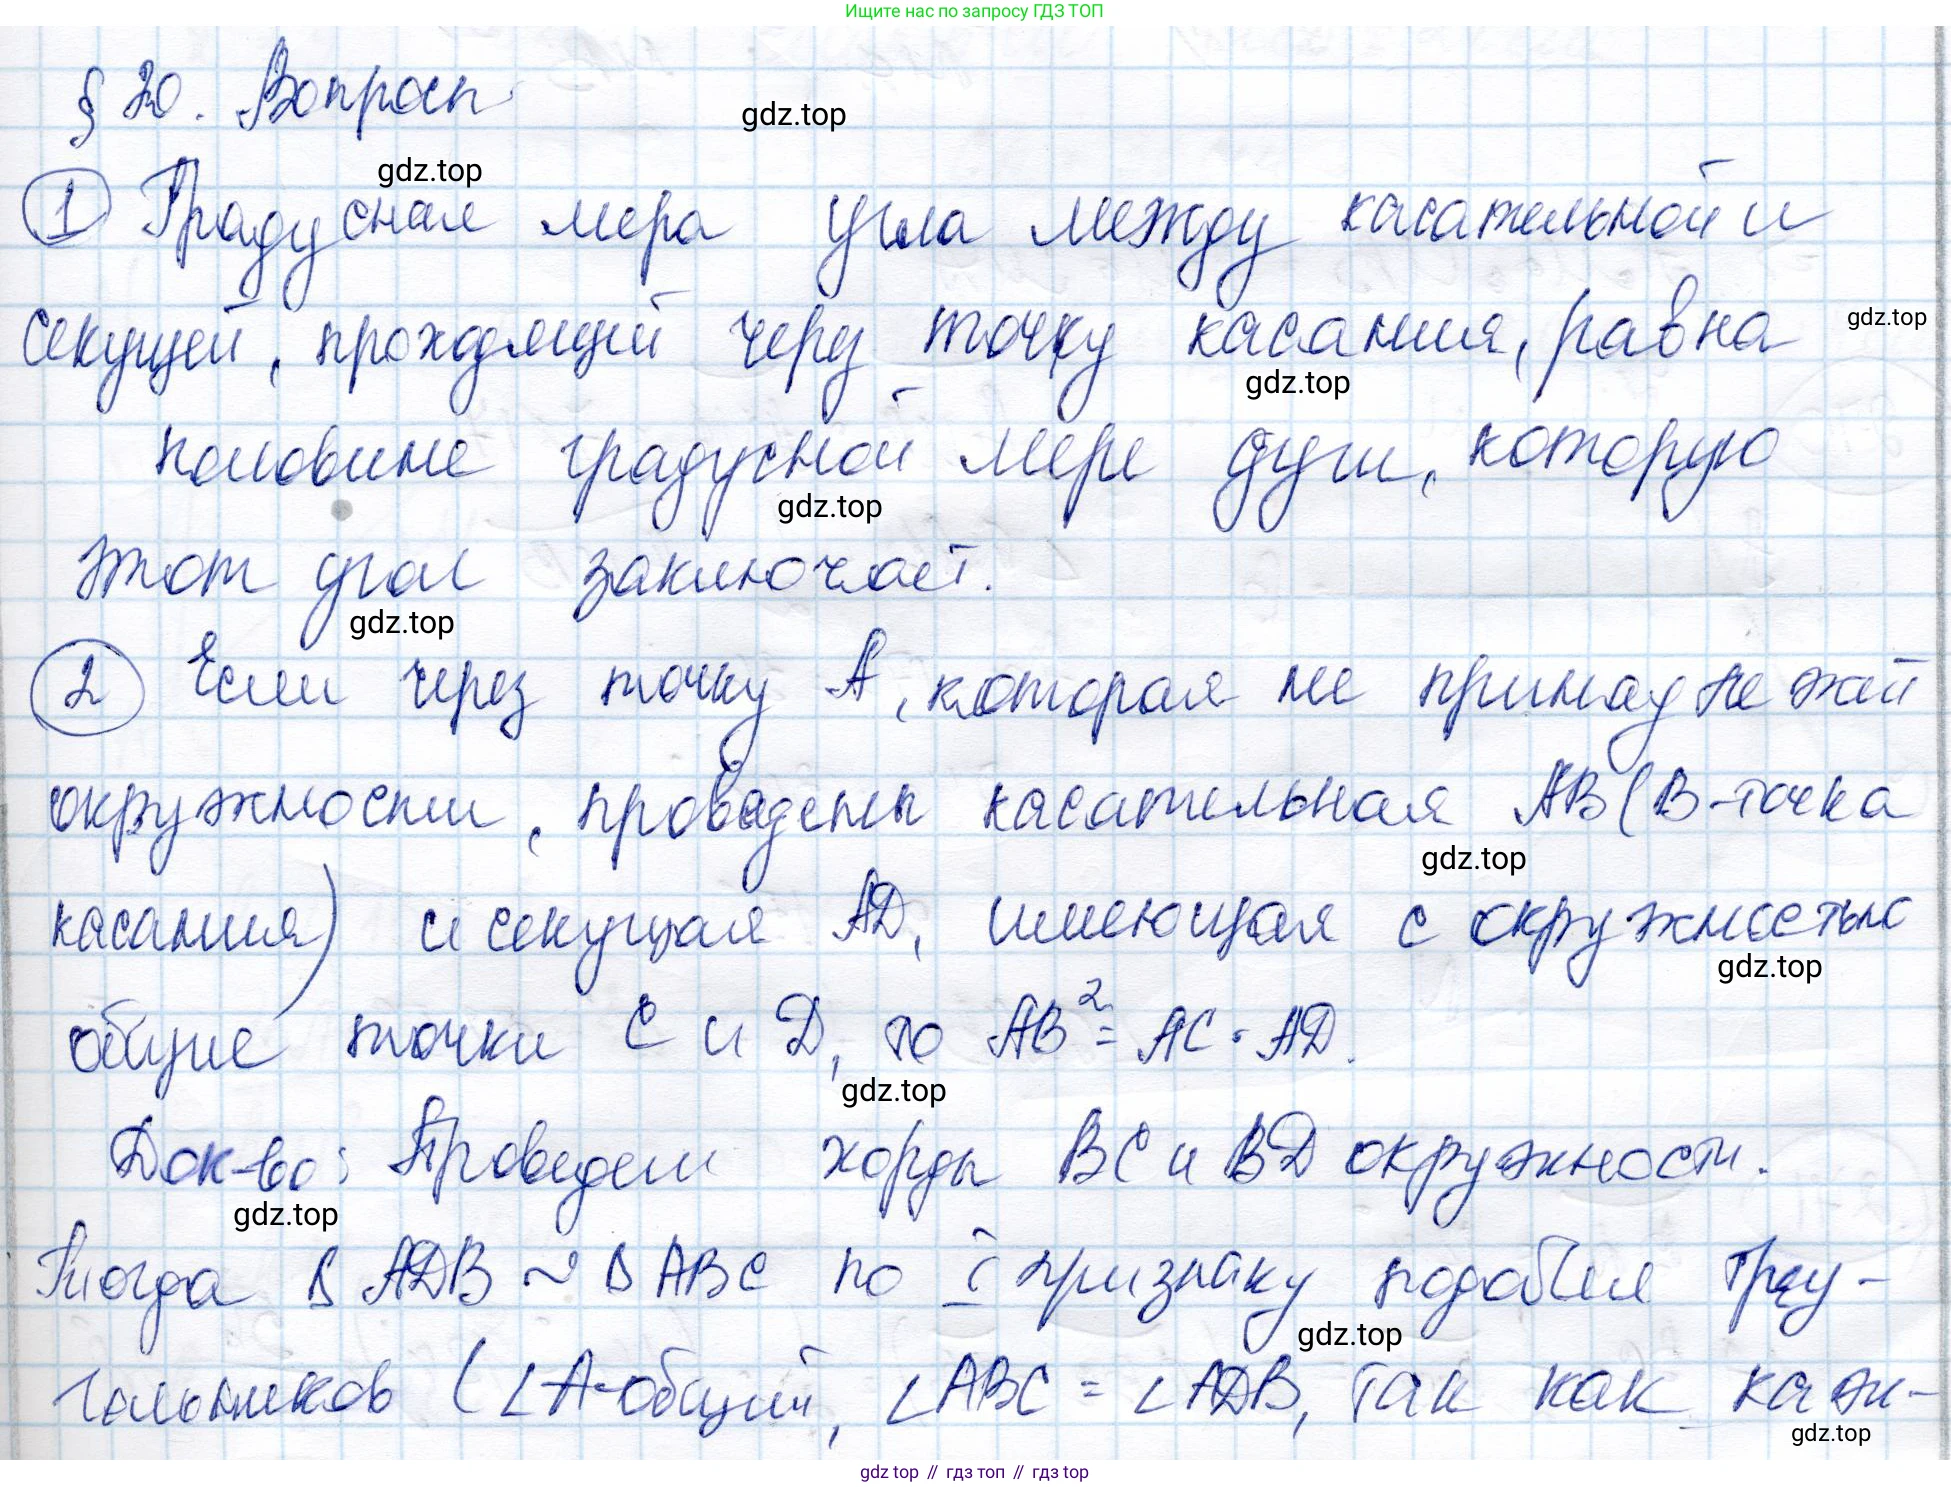 Ищите нас по запросу ГДЗ ТОП
§ 20. Вопросы
gdz.top
gdz.top
1 Градусная мера угла между касательной и
секущей, проходящей через точку касания, равна
gdz.top
gdz.top
половине градусной мере дуги, которую
gdz.top
этот угол заключает.
gdz.top
2 Если через точку А, которая не принадлежит
окружности, проведены касательная АВ (В-точка
gdz.top
касания) и секущая АD, имеющая с окружностью
gdz.top
общие точки С и D, то АВ² = АС · АD.
gdz.top
Док-во: Проведем хорды ВС и ВD окружности.
gdz.top
Тогда Δ АDВ ~ Δ АВС по I признаку подобия треу-
gdz.top
гольников (∠А-общий, ∠АВС = ∠АDВ, так как каж-
gdz.top
gdz top // гдз топ // гдз top